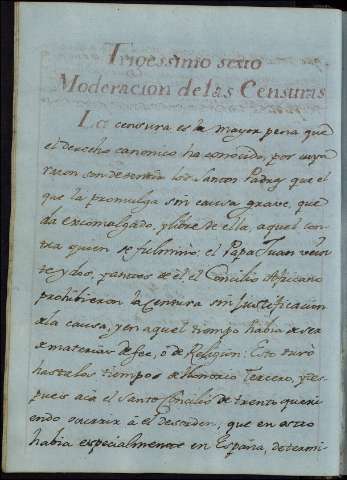 Trigessimo sexto
Moderacion de las Censuras
La censura es la mayor pena que
el derecho canonico ha conocido, por cuya
razon son de sentir los Santos Padres que el
que la promulga sin causa grave, queda
excomulgado, y libre de ella, aquel con-
tra quien se fulminò: el Papa Juan vein
te y dos, y antes de el el Concilio Africano
prohibieron la Censura sin justificacion
de la causa, y en aquel tiempo habia de ser
de materias de fee, ò de Religion: Esto durò
hasta los tiempos de Honorio Tercero, y des-
pues acà el Santo Concilio de trento queri
endo ocurrir à el desorden, que en esto
habia especialmente en España, determi-